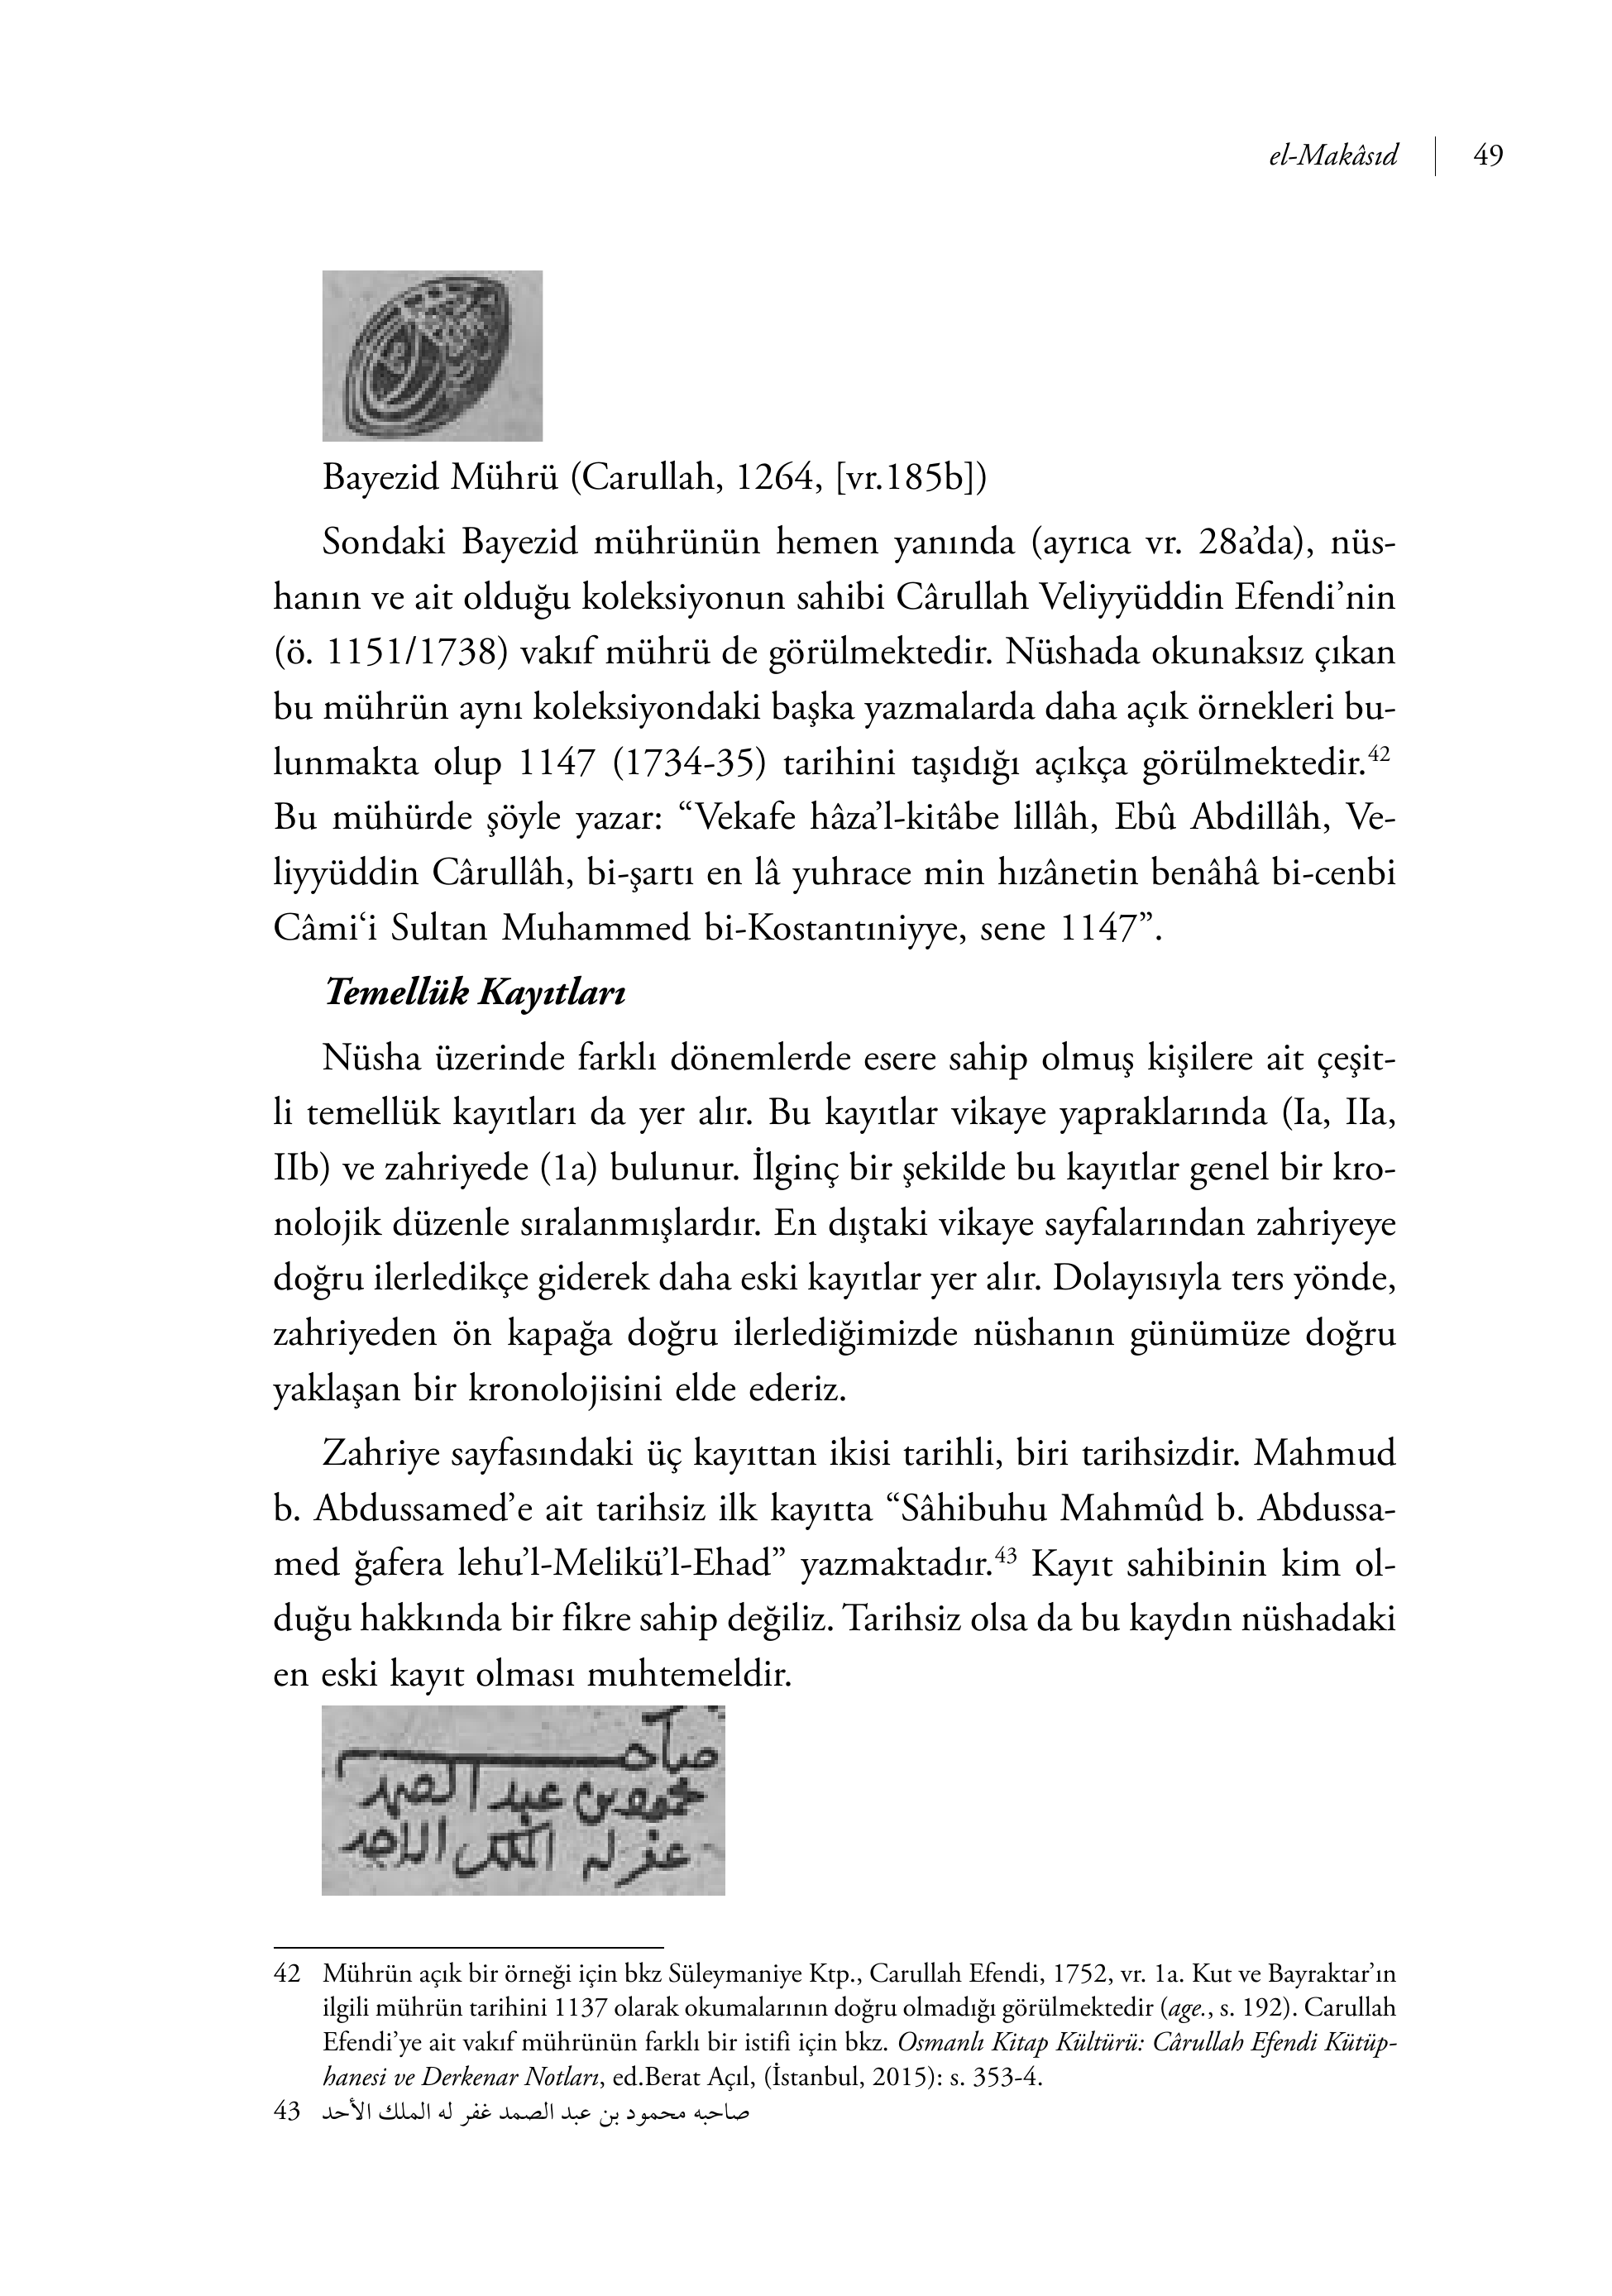 el-Makâsıd 49
Bayezid Mührü (Carullah, 1264, [vr.185b])
Sondaki Bayezid mührünün hemen yanında (ayrıca vr. 28a’da), nüs-
hanın ve ait olduğu koleksiyonun sahibi Cârullah Veliyyüddin Efendi’nin
(ö. 1151/1738) vakıf mührü de görülmektedir. Nüshada okunaksız çıkan
bu mührün aynı koleksiyondaki başka yazmalarda daha açık örnekleri bu-
lunmakta olup 1147 (1734-35) tarihini taşıdığı açıkça görülmektedir.42
Bu mühürde şöyle yazar: “Vekafe hâza’l-kitâbe lillâh, Ebû Abdillâh, Ve-
liyyüddin Cârullâh, bi-şartı en lâ yuhrace min hızânetin benâhâ bi-cenbi
Câmi‘i Sultan Muhammed bi-Kostantıniyye, sene 1147”.
Temellük Kayıtları
Nüsha üzerinde farklı dönemlerde esere sahip olmuş kişilere ait çeşit-
li temellük kayıtları da yer alır. Bu kayıtlar vikaye yapraklarında (Ia, IIa,
IIb) ve zahriyede (1a) bulunur. İlginç bir şekilde bu kayıtlar genel bir kro-
nolojik düzenle sıralanmışlardır. En dıştaki vikaye sayfalarından zahriyeye
doğru ilerledikçe giderek daha eski kayıtlar yer alır. Dolayısıyla ters yönde,
zahriyeden ön kapağa doğru ilerlediğimizde nüshanın günümüze doğru
yaklaşan bir kronolojisini elde ederiz.
Zahriye sayfasındaki üç kayıttan ikisi tarihli, biri tarihsizdir. Mahmud
b. Abdussamed’e ait tarihsiz ilk kayıtta “Sâhibuhu Mahmûd b. Abdussa-
med ğafera lehu’l-Melikü’l-Ehad” yazmaktadır.43 Kayıt sahibinin kim ol-
duğu hakkında bir fikre sahip değiliz. Tarihsiz olsa da bu kaydın nüshadaki
en eski kayıt olması muhtemeldir.
صاحبه
محمود بن عبد الصمد
غفر له الملك الاحد
42 Mührün açık bir örneği için bkz Süleymaniye Ktp., Carullah Efendi, 1752, vr. 1a. Kut ve Bayraktar’ın
ilgili mührün tarihini 1137 olarak okumalarının doğru olmadığı görülmektedir (age., s. 192). Carullah
Efendi’ye ait vakıf mührünün farklı bir istifi için bkz. Osmanlı Kitap Kültürü: Cârullah Efendi Kütüp-
hanesi ve Derkenar Notları, ed.Berat Açıl, (İstanbul, 2015): s. 353-4.
43 صاحبه محمود بن عبد الصمد غفر له الملك الأحد